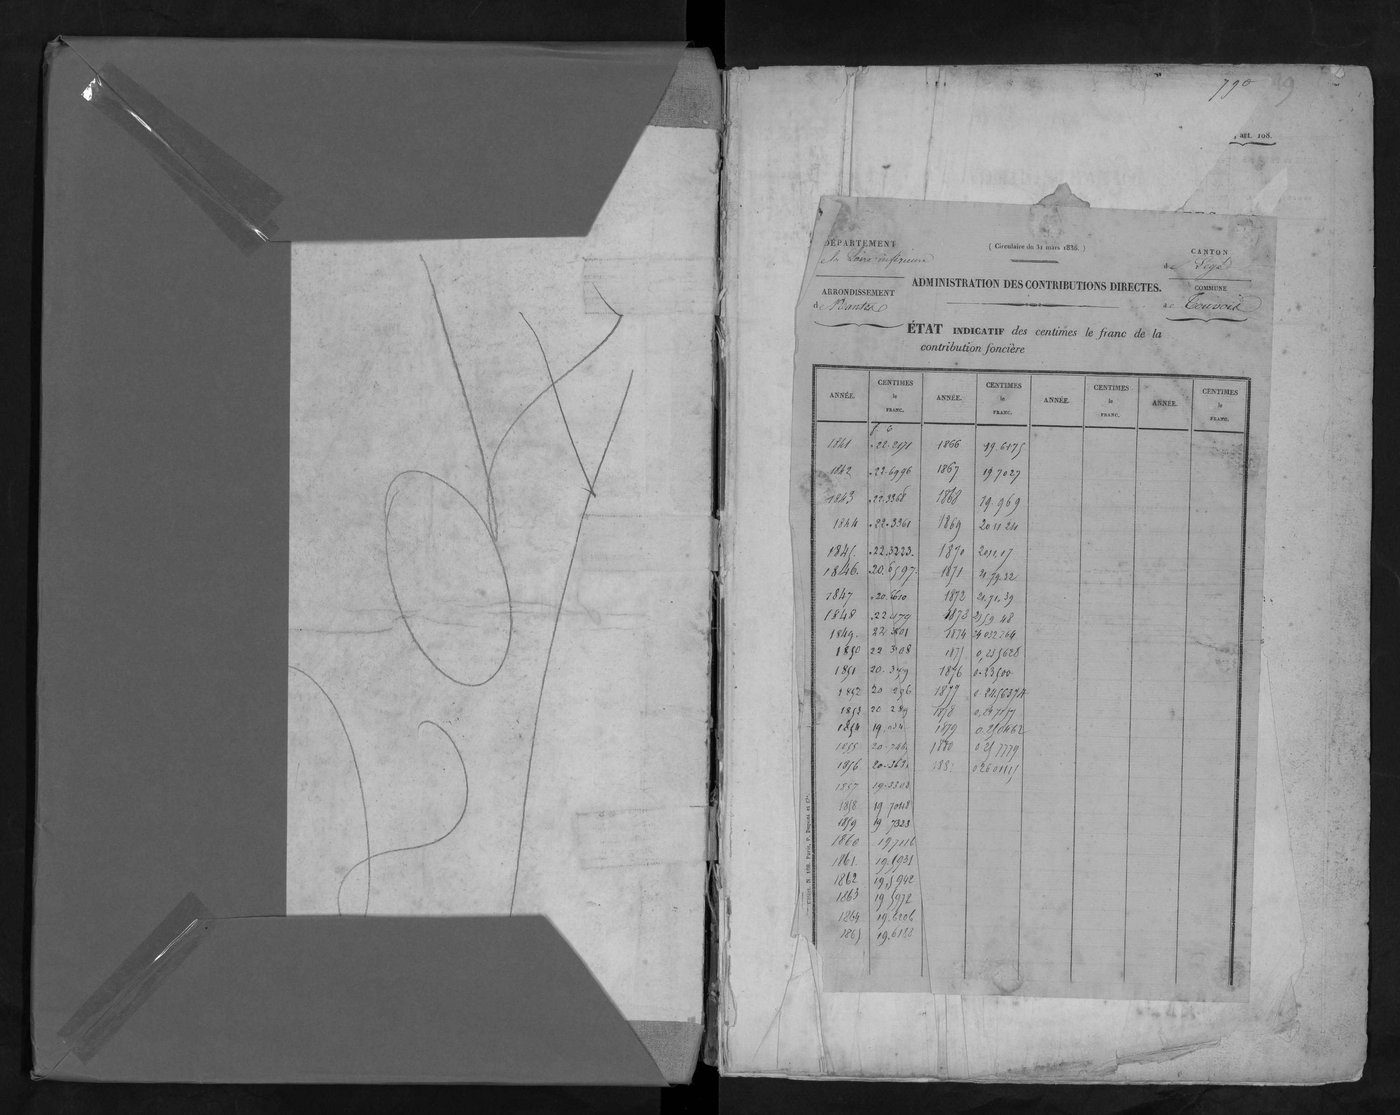 790 49
, art. 108.
DÉPARTEMENT
de la Loire inférieure
( Circulaire du 31 mars 1836. )
CANTON
de Légé
ARRONDISSEMENT
de Nantes
ADMINISTRATION DES CONTRIBUTIONS DIRECTES.
COMMUNE
de Touvois
ÉTAT INDICATIF des centimes le franc de la
contribution foncière
ANNÉE. CENTIMES le FRANC. ANNÉE. CENTIMES le FRANC. ANNÉE. CENTIMES le FRANC. ANNÉE. CENTIMES le FRANC.
1841 1866 19.6175
1842 22.6996 1867 19 7027
1843 22.3368 1868 19 969
1844 22.3361 1869 20 11 24
1845 22.3223 1870 20 11.17
1846 20.6597 1871 21.79.32
1847 20.6610 1872 21.71.39
1848 22 1873
1849 22 3801 1874
1850 22 1875 0,235628
1851 20 1876 0.23500
1852 20 296 1877 0 2456374
1853 20 289 1878
1854 19 1879 0.250462
1855 20 744 1880 0 257779
1856 20.363 1881
1857 19.3308
1858 19 7048
1859 19 7323
1860 19 7116
1861 19.5931
1862 19,5942
1863 19 5972
1864 19.6206
1865 19.6188